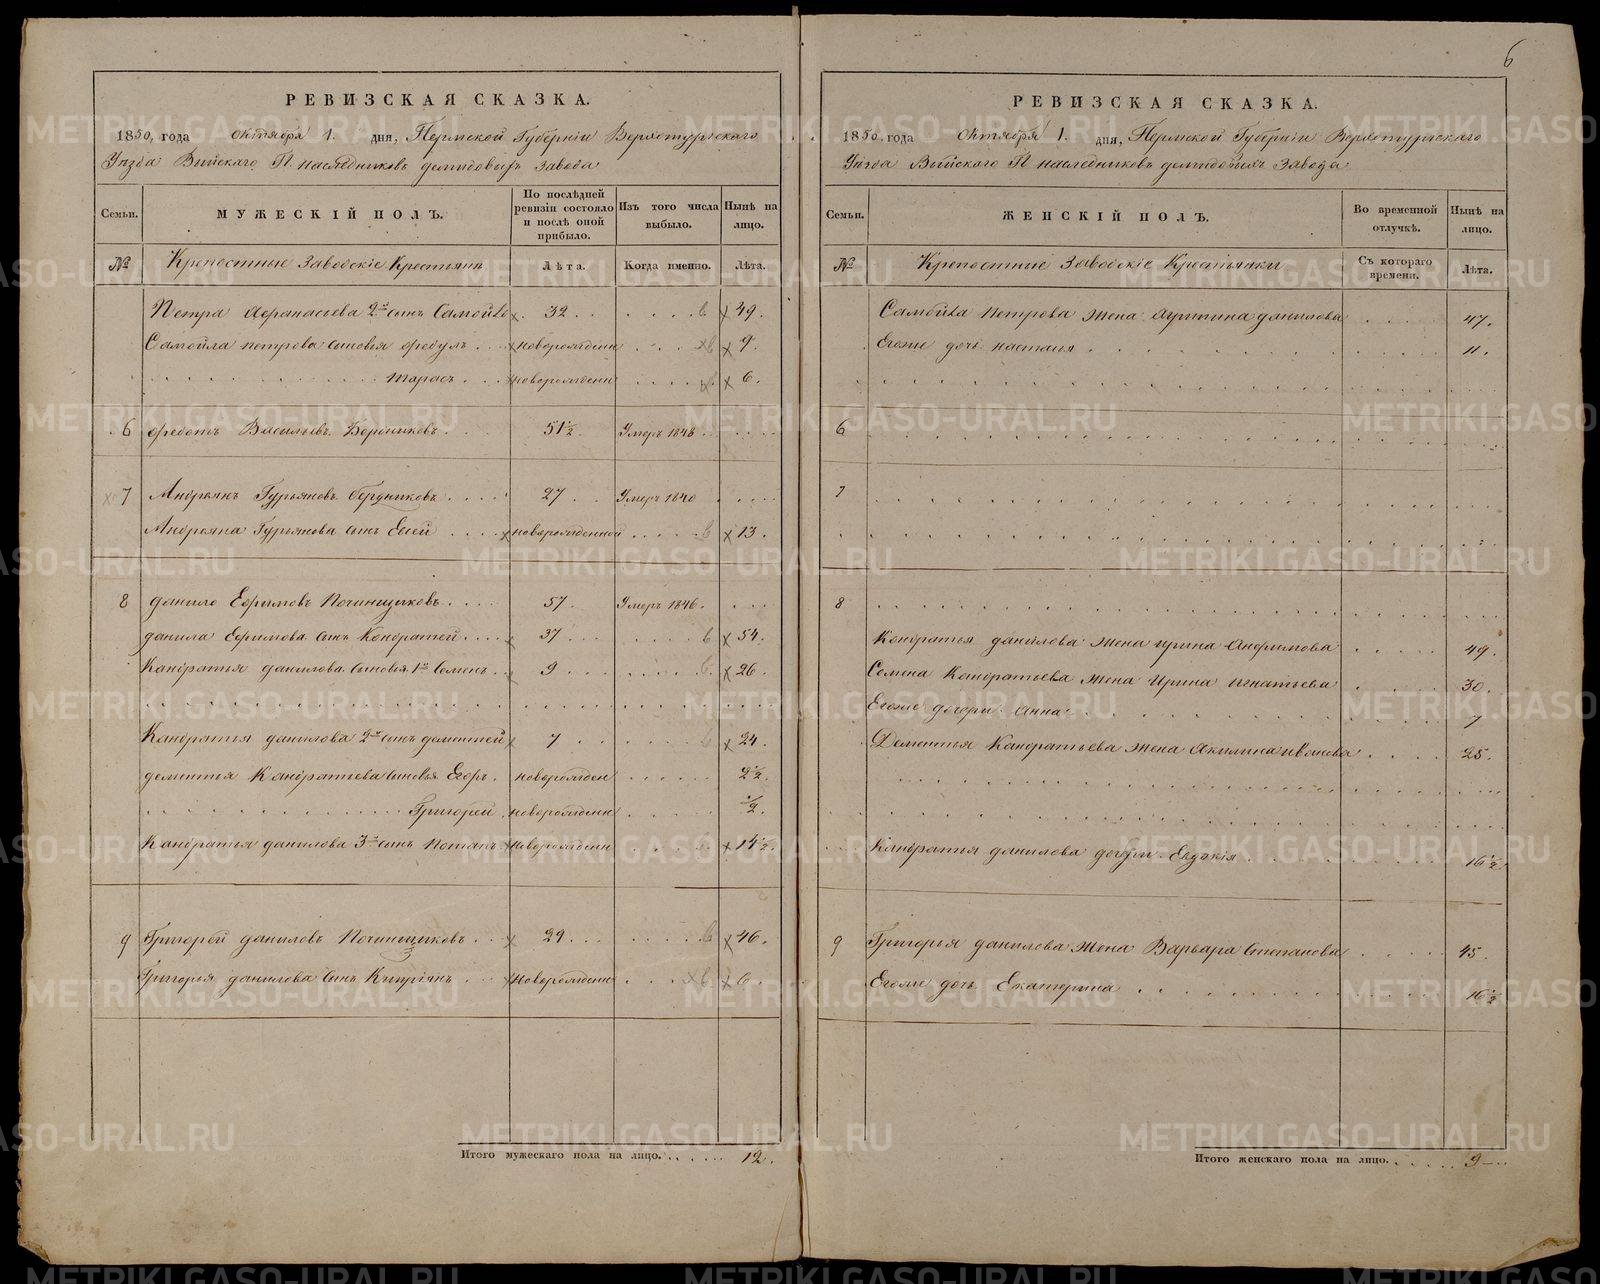 6
РЕВИЗСКАЯ СКАЗКА.
1850, года октября 1. дня, Пермской Губерніи Верхотурскаго
Уѣзда Выйскаго Гг. наслѣдниковъ демидовыхъ завода
Семьи.
МУЖЕСКІЙ ПОЛЪ.
По послѣдней ревизіи состояло и послѣ оной прибыло.
Изъ того числа выбыло.
Нынѣ на лицо.
№
Крепостные Заводскіе Крестьяне
Лѣта.
Когда именно.
Лѣта.
Петра Афанасьева 2й сынъ Самойло 32 49.
Самойла петрова сыновья Федулъ новорожденн 9.
тарасъ новорожденн 6.
6 Федотъ Васильевъ Бердниковъ 51½ Умеръ 1848
7 Андреянъ Гурьяновъ бердниковъ 27 Умеръ 1840
Андреяна Гурьянова сынъ Евсей новорожденной 13.
8 данило Ефимовъ Починщиковъ 57 Умеръ 1846.
данила Ефимова сынъ Кондратей 37 54.
Кандратья данилова сыновья 1й Семенъ 9 26.
Кандратья данилова 2й сынъ дементей 7 24.
дементья Кандратьева сыновья Егоръ новорожден 2½.
Григорей новорожденн ½.
Кандратья данилова 3й сынъ Потапъ новорожденн 14½.
9 Григорей даниловъ Починщиковъ 29 46.
Григорья данилова сынъ Кипріянъ новорожденн 6.
Итого мужескаго пола на лицо. 12.
РЕВИЗСКАЯ СКАЗКА.
1850, года октября 1. дня, Пермской Губерніи Верхотурскаго
Уѣзда Выйскаго Гг. наследниковъ демидовыхъ Завода
Семьи.
ЖЕНСКІЙ ПОЛЪ.
Во временной отлучкѣ.
Нынѣ на лицо.
№
Крепостные Заводскіе Крестьянки
Съ котораго времени.
Лѣта.
Самойла Петрова жена данилова 47.
Егоже дочь настасья 11.
6
7
8
Кондратья данилова жена ирина 49.
Семена Кандратьева жена Ирина игнатьева 30.
Егоже дочери анна 7
Дементья Кандратьева жена акилина иванова 25.
Кандратья данилова дочери Евдокія 16½
9 Григорья данилова жена Варвара Степанова 45.
Егоже дочь Екатерина 16½
Итого женскаго пола на лицо. 9
METRIKI.GASO-URAL.RU